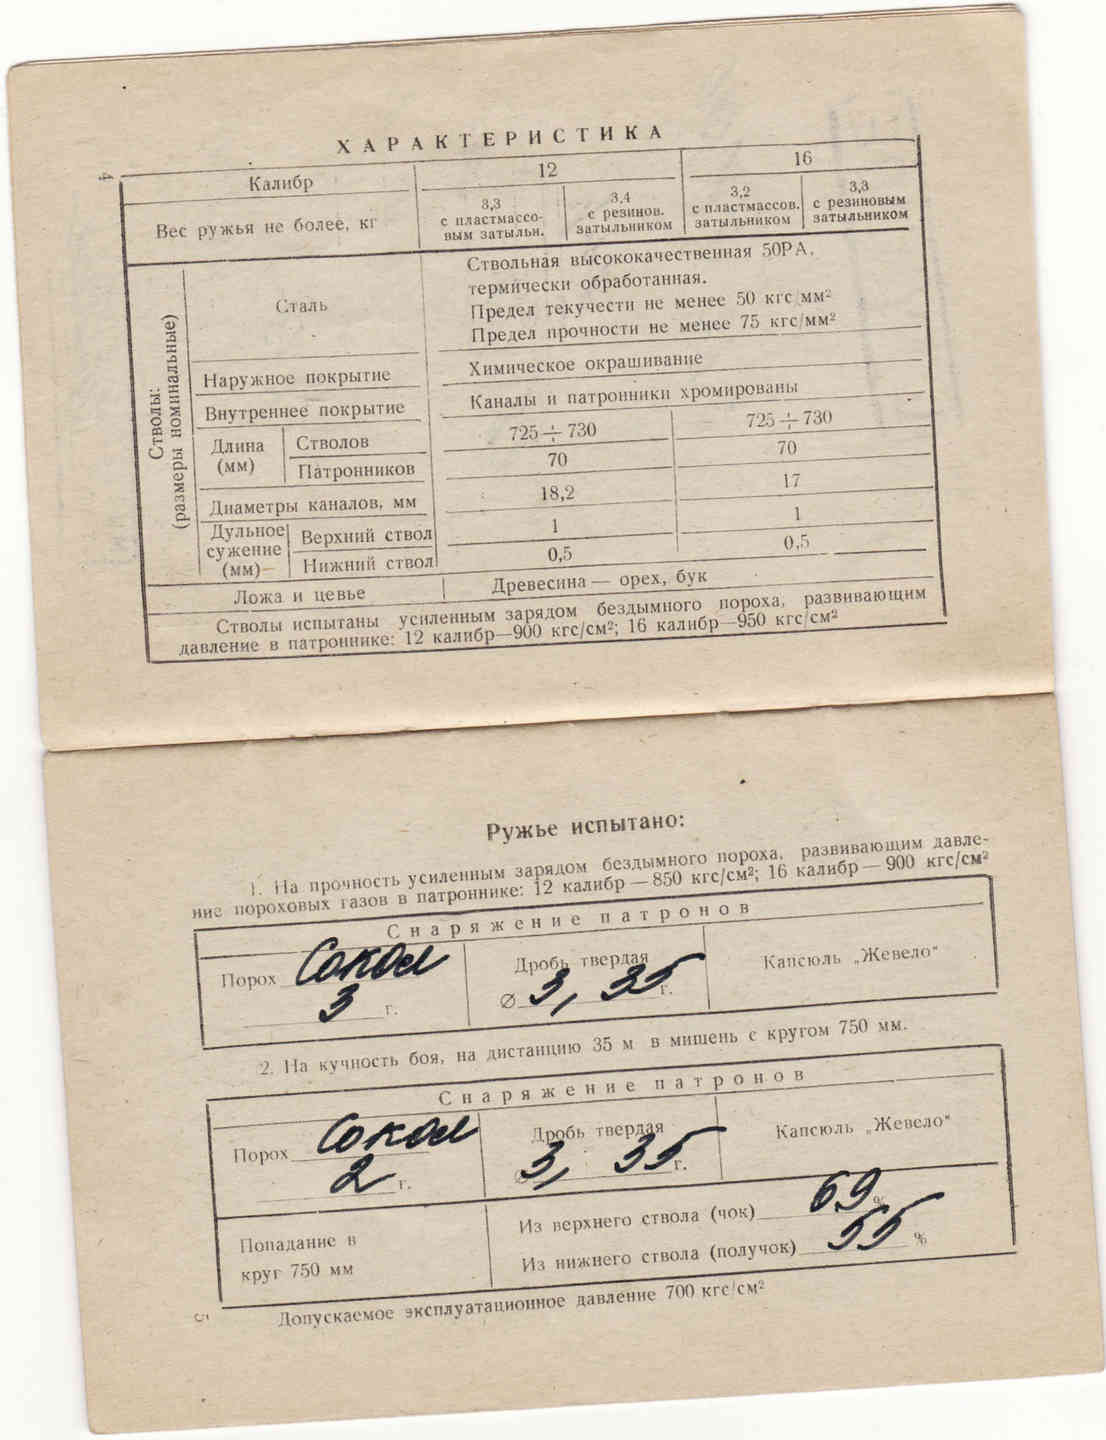 4
ХАРАКТЕРИСТИКА
Калибр 12 16
Вес ружья не более, кг
3,3 с пластмассо-вым затыльн.
3,4 с резинов. затыльником
3,2 с пластмассов. затыльником
3,3 с резиновым затыльником
Стволы: (размеры номинальные)
Сталь
Ствольная высококачественная 50РА,
термически обработанная.
Предел текучести не менее 50 кгс/мм²
Предел прочности не менее 75 кгс/мм²
Наружное покрытие Химическое окрашивание
Внутреннее покрытие Каналы и патронники хромированы
Длина (мм)
Стволов 725÷730 725÷730
Патронников 70 70
Диаметры каналов, мм 18,2 17
Дульное сужение (мм)
Верхний ствол 1 1
Нижний ствол 0,5 0,5
Ложа и цевье Древесина — орех, бук
Стволы испытаны усиленным зарядом бездымного пороха, развивающим
давление в патроннике: 12 калибр—900 кгс/см²; 16 калибр—950 кгс/см²
Ружье испытано:
1. На прочность усиленным зарядом бездымного пороха, развивающим давле-
ние пороховых газов в патроннике: 12 калибр — 850 кгс/см²; 16 калибр — 900 кгс/см²
Снаряжение патронов
Порох Сокол Дробь твердая Капсюль „Жевело"
3 г. ∅ 3, 35 г.
2. На кучность боя, на дистанцию 35 м в мишень с кругом 750 мм.
Снаряжение патронов
Порох Сокол Дробь твердая Капсюль „Жевело"
2 г. ∅ 3, 35 г.
Попадание в
круг 750 мм
Из верхнего ствола (чок) 69 %
Из нижнего ствола (получок) 55 %
Допускаемое эксплуатационное давление 700 кгс/см²
5